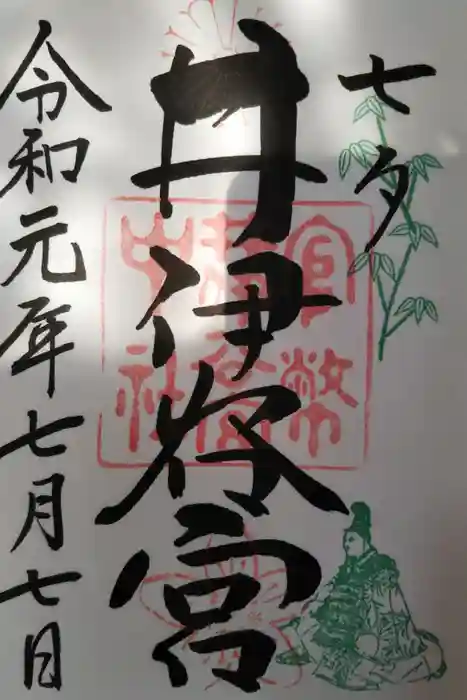 七夕
井伊谷宮
令和元年七月七日
官幣
中社